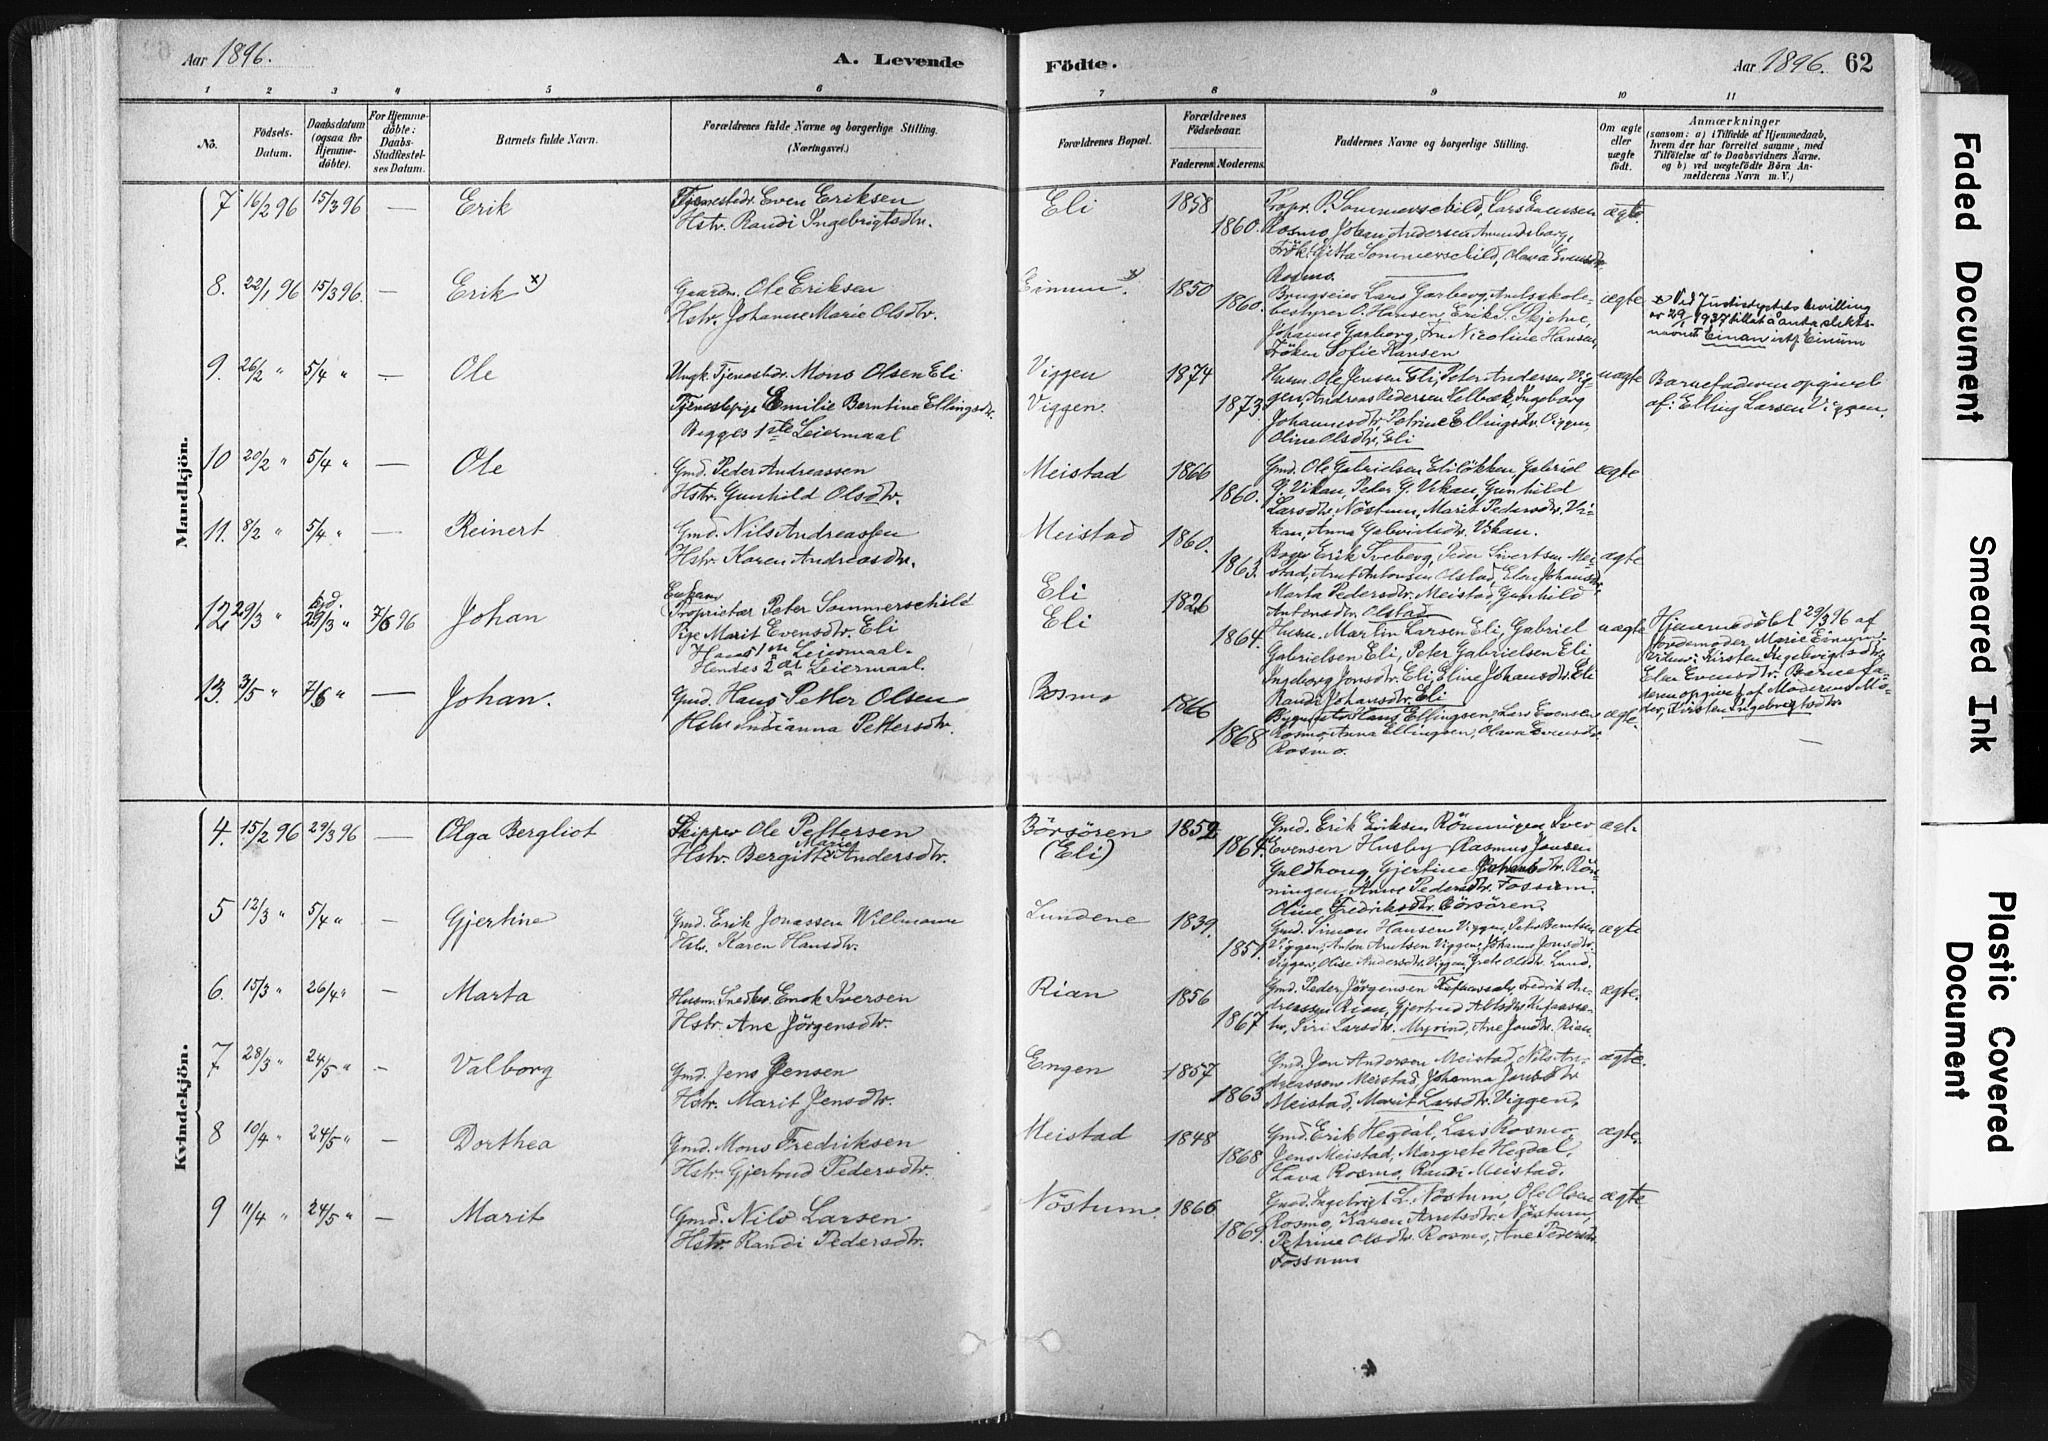 Aar 1896. A. Levende Födte. Aar 1896. 62
1 2 3 4 5 6 7 8 9 10 11
No. Födsels-Datum. Daabsdatum (ogsaa for Hjemme-döbte). For Hjemme-döbte: Daabs-Stadfæstel-ses Datum. Barnets fulde Navn. Forældrenes fulde Navne og borgerlige Stilling. (Næringsvei.) Forældrenes Bopæl. Forældrenes Födselsaar. Faderens. Moderens. Faddernes Navne og borgerlige Stilling. Om ægte eller uægte födt. Anmærkninger
(saasom: a) i Tilfælde af Hjemmedaab, hvem der har forrettet samme, med Tilföielse af to Daabsvidners Navne. og b) ved uægtefödte Börn An-melderens Navn m. V.)
Mandkjön.
7 16/2 96 15/3 96 — Erik Tjenestedr. Even Eriksen Eli 1858 Propr. P. Sommerschild, Lars Evensen ægte.
Hstr. Randi Ingebrigtsdtr. 1860. Rosmo, Johan Andersen
Sommerschild, Olava Evensdtr.
Rosmo.
8. 22/1 96 15/3 96. — Erik x) Gaardm. Ole Eriksen Eimun. x) 1850 Brugseier Lars Garberg, Amtsskole- ægte x Ved Justisdeptets bevilling
Hstr. Johanne Marie Olsdtr. 1860. bestyrer O. Hansen, Erik S. Skjetne, av 29/1 1937 tillatt å anta slekts-
Johanne Garberg, Fru Nicoline Hansen, navnet Einan istf Einum
Fröken Sofie Hansen
9. 26/2 " 5/4 " — Ole Ungk. Tjenestedr. Mons Olsen Eli Viggen 1874 Husm. Ole Jensen Eli, Peter Andersen Vig- uægte Barnefaderen opgivet
Tjenestepige Emilie Berntine Ellingsdtr. Viggen. 1873. gen, Andreas Pedersen Selbæk, Ingeborg af: Elling Larsen Viggen.
Begges 1ste Leiermaal Johannesdtr., Petrine Ellingsdtr. Viggen,
Oline Olsdtr. Eli
10 20/2 " 5/4 " — Ole Gmd. Peder Andreassen Meistad 1866 Gmd. Ole Gabrielsen Eliløkken, Gabriel ægte
Hstr. Gunhild Olsdtr. 1860. G. Vikan, Peder G. Vikan, Gunhild
Larsdtr. Nöstum, Marit Pedersdtr. Vi-
kan, Anna Gabrielsdtr. Vikan.
11. 8/2 " 5/4 " — Reinert Gmd. Nils Andreassen Meistad 1860.
Hstr. Karen Andreasdtr. 1863. Erik Sveberg, Peder Sivertsen Mei- ægte
stad, Arnt Antonsen Olstad, Elen Johansdtr.
Marta Pedersdtr. Meistad, Gunhild
Antonsdtr. Olstad
12. 29/3 " hjd. 29/3 " 7/6 96 Johan Enkem. Eli 1826
Proprietær Peter Sommerschild Eli
Pige Marit Evensdtr. Eli 1864. Husm. Martin Larsen Eli, Gabriel uægte Hjemmedöbt 29/3 96 af
Hans 1ste Leiermaal. Gabrielsen Eli, Peter Gabrielsen Eli Jordemoder Marie Eimun.
Hendes 2det Leiermaal. Ingeborg Jonsdtr. Eli, Eline Johansdtr. Eli Vidner: Kirsten Ingebrigtsdtr.
Randi Johansdtr. Eli Elen Evensdtr. Barnefa-
deren opgivet af Moderens Mo-
der, Kirsten Ingebrigtsdtr.
13. 3/5 " 7/6 " — Johan. Gmd. Hans Petter Olsen Rosmo 1866 Hans Ellingsen, Lars Evensen ægte. —
Hstr. Indianna Pettersdtr. 1868 Rosmo, Anna Ellingsen, Olava Evensdtr.
Rosmo.
Kvindekjön.
4. 15/2 96 29/3 96 — Olga Bergliot Skipper Ole Pettersen Börsören 1852 Gmd. Erik Eriksen Rönningen, Iver ægt.
Hstr. Bergitte Marie Andersdtr. (Eli) 1864. Evensen Husby, Rasmus Jonsen
Guldhaug, Gjertine Johansdtr. Rön-
ningen, Anne Pedersdtr. Fossum.
Oline Fredriksdtr. Börsören.
5 12/3 " 5/4 " — Gjertine Gmd. Erik Jonassen Willmann Lundene 1839. Gmd. Simon Hansen Viggen, Peter Berntsen ægte
Hstr. Karen Hansdtr. 1851. Viggen, Anton Arntsen Viggen, Johanna Jonsdtr.
Viggen, Olise Andersdtr. Viggen, Grete Olsdtr. Lund.
6. 15/3 " 26/4 " — Marta Husm. Snedker Enok Iversen Rian 1856 Gmd. Peder Jörgensen Fredrik An- ægte.
Hstr. Ane Jörgensdtr. 1867 dreassen Rian, Gjertrud
Siri Larsdtr. Myrind, Ane Jonsdtr. Rian
7 28/3 " 24/5 " — Valborg Gmd. Jens Jensen Engen 1857 Gmd. Jon Andersen Meistad, Nils An- ægte.
Hstr. Marit Jensdtr. 1863 dreassen Meistad, Johanna Jonsdtr.
Meistad, Marit Larsdtr. Viggen.
8 10/4 " 24/5 " — Dorthea Gmd. Mons Fredriksen Meistad 1848 Gmd. Erik Hegdal, Lars Rosmo, ægte.
Hstr. Gjertrud Pedersdtr. 1868 Jens Meistad, Margrete Hegdal,
Lava Rosmo, Randi Meistad.
9 11/4 " 24/5 " — Marit Gmd. Nils Larsen Nöstum. 1866 Gmd. Ingebrigt L. Nöstum, Ole Olsen ægte
Hstr. Randi Pedersdtr. 1869. Rosmo, Karen Arntsdtr. Nöstum,
Petrine Olsdtr. Rosmo, Ane Pedersdtr.
Fossum
Faded Document
Smeared Ink
Plastic Covered
Document